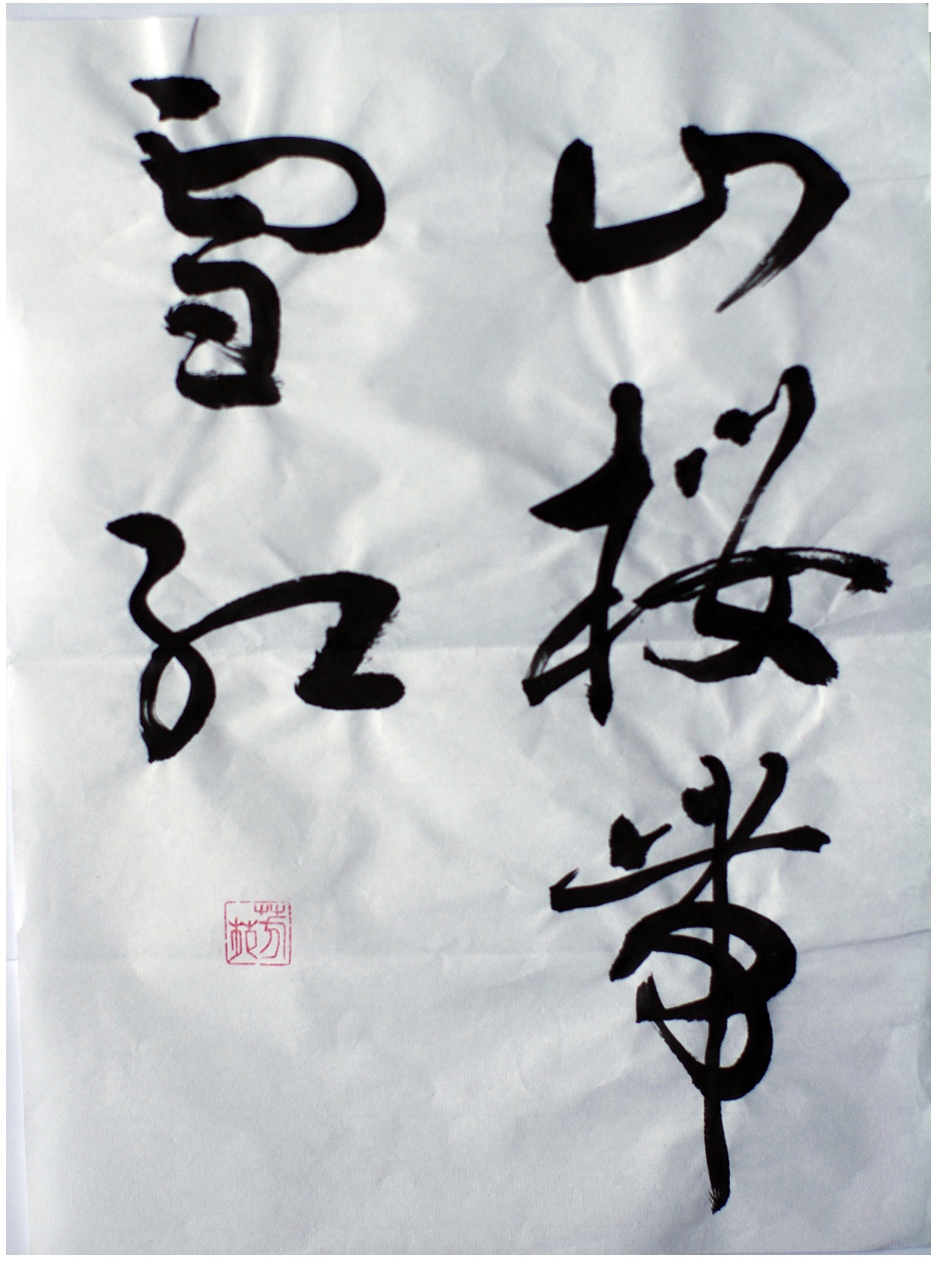 山桜帯
雪紅
芳苑